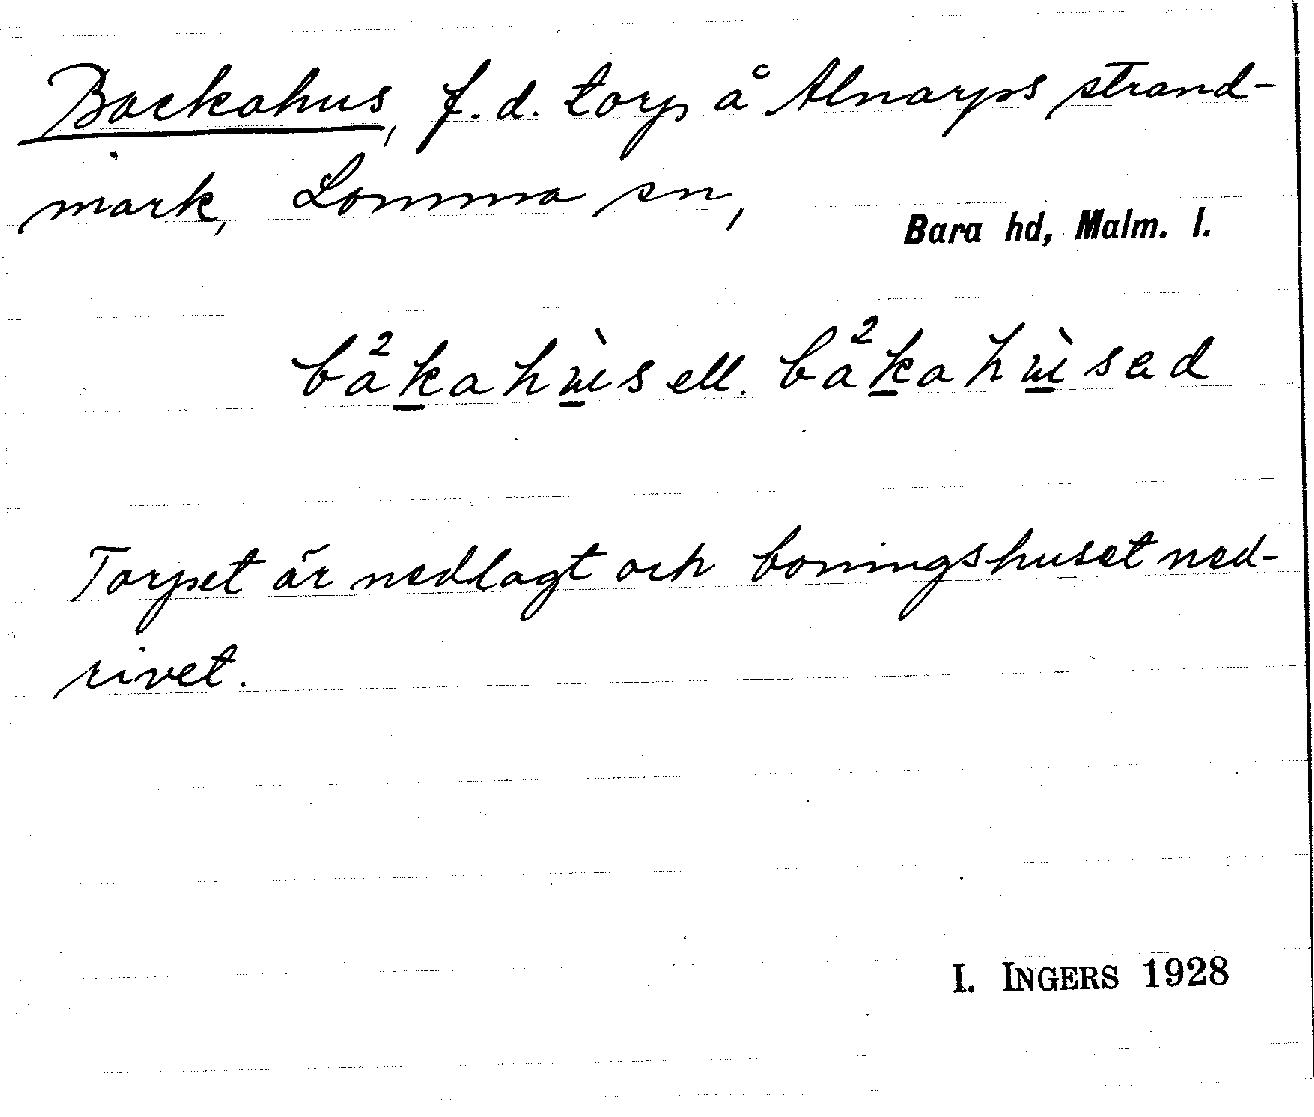 Backahus, f.d. torp å Alnarps strand-
mark, Lomma sn,
Bara hd, Malm. l.
bà²kahùs ell. bà²kahùsed
Torpet är nedlagt och boningshuset ned-
rivet.
I. INGERS 1928